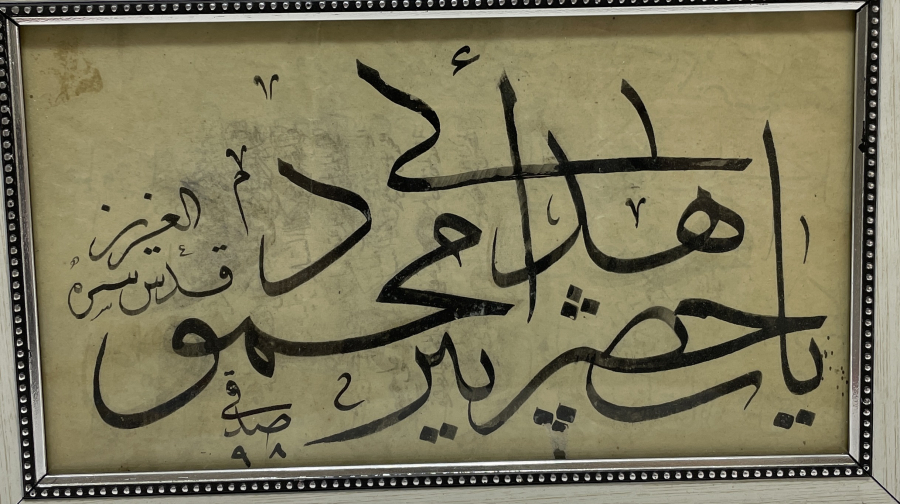 يا حضرت پير محمود هدائى
قدس سره
العزيز
صدقى
٩٨